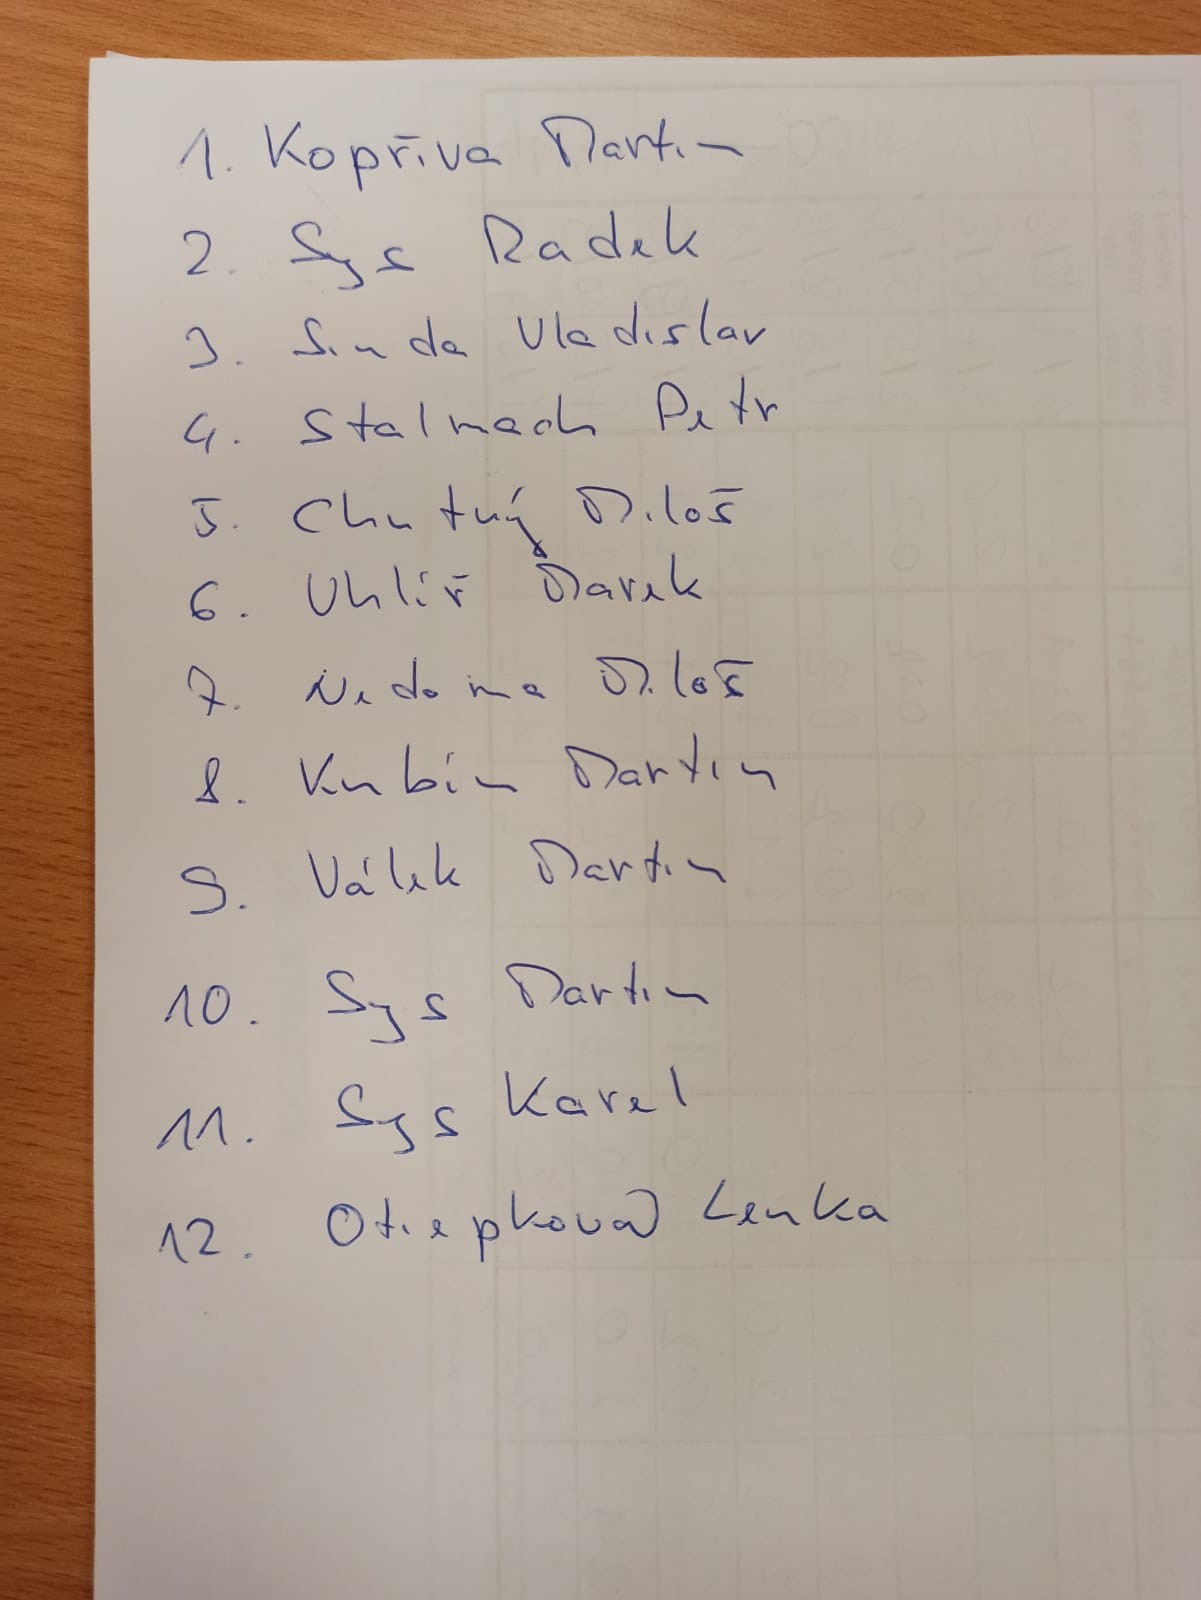 1. Kopřiva Martin
2. Sys Radek
3. Sinda Vladislav
4. Stalmach Petr
5. Chutný Miloš
6. Uhlíř Marek
7. Nedoma Miloš
8. Kubín Martin
9. Válek Martin
10. Sys Martin
11. Sys Karel
12. Otiepková Lenka